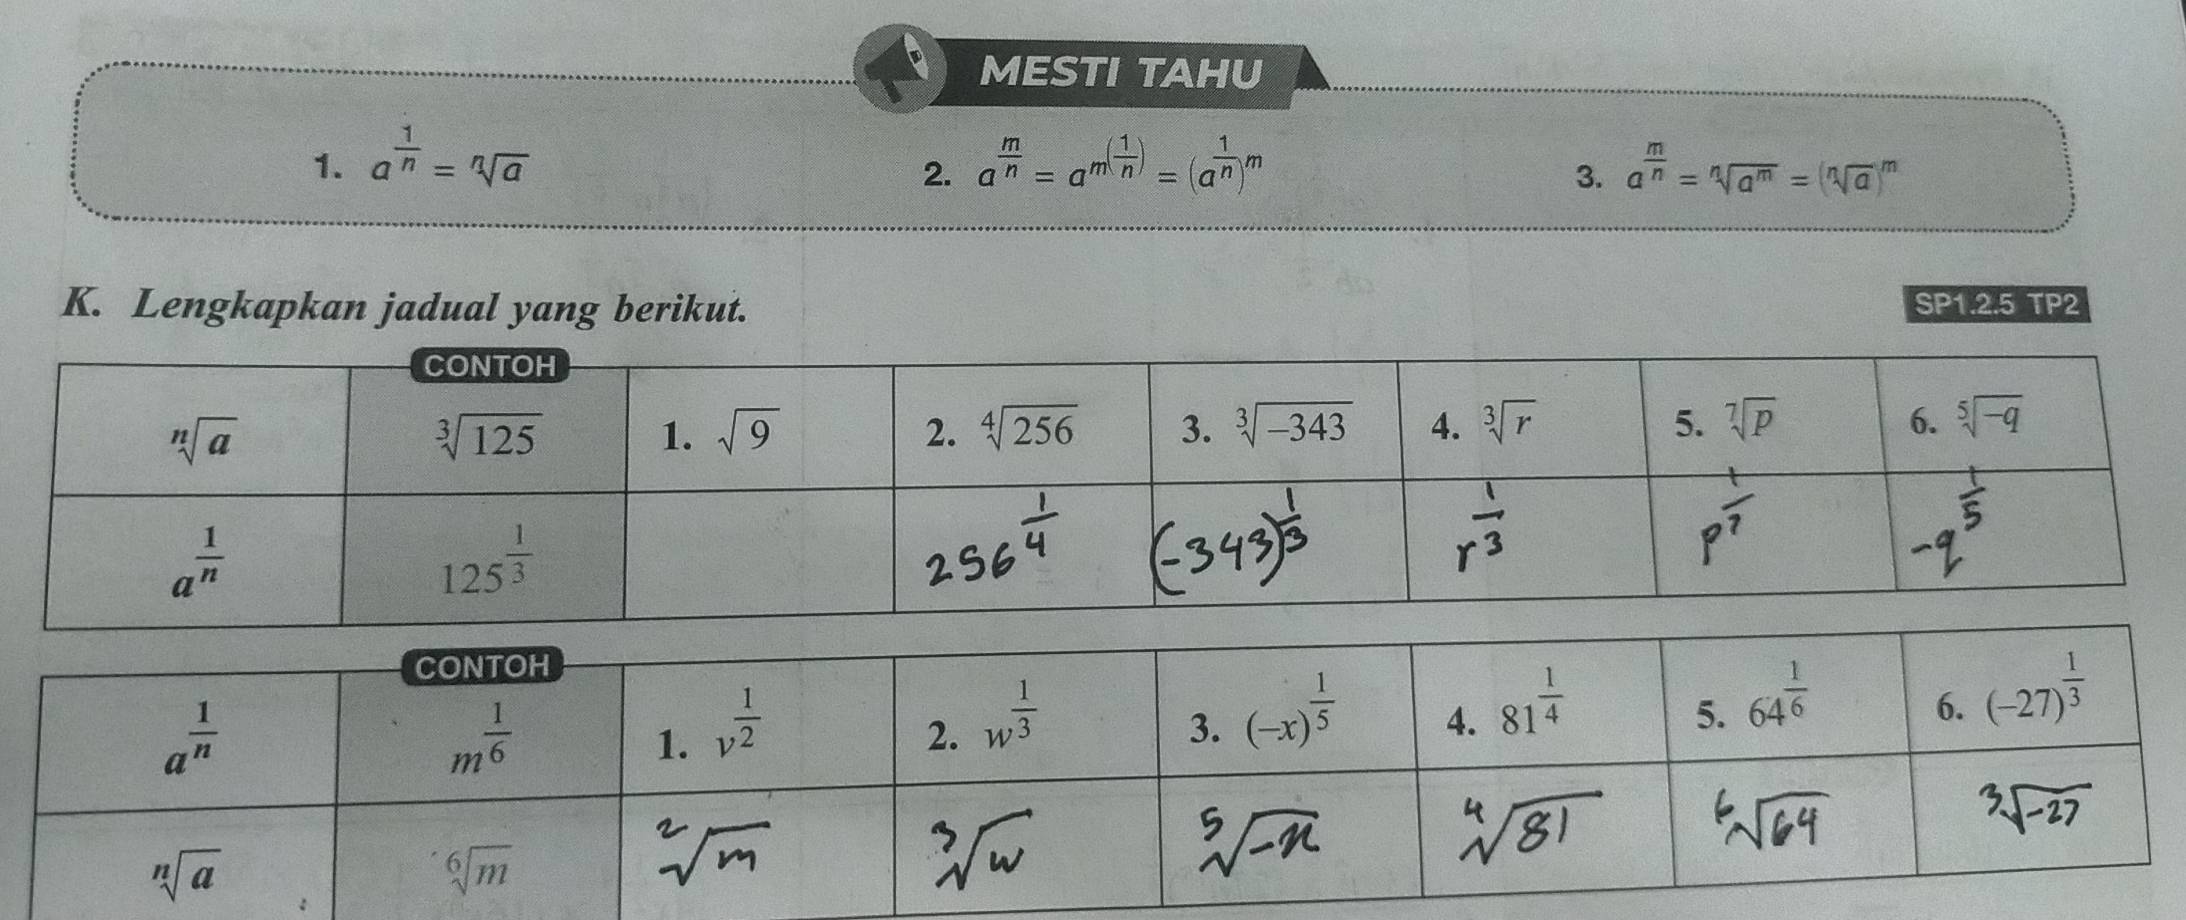 MESTI TAHU
1. a^(1/n) = ⁿ√a 2. a^(m/n) = a^(m(1/n)) = (a^(1/n))^m 3. a^(m/n) = ⁿ√(a^m) = (ⁿ√a)^m
K. Lengkapkan jadual yang berikut. SP1.2.5 TP2
CONTOH
ⁿ√a ³√125 1. √9 2. ⁴√256 3. ³√-343 4. ³√r 5. ⁷√p 6. ⁵√-q
a^(1/n) 125^(1/3) 256^(1/4) (-343)^(1/3) r^(1/3) p^(1/7) -q^(1/5)
CONTOH
a^(1/n) m^(1/6) 1. v^(1/2) 2. w^(1/3) 3. (-x)^(1/5) 4. 81^(1/4) 5. 64^(1/6) 6. (-27)^(1/3)
ⁿ√a ⁶√m ²√m ³√w ⁵√-x ⁴√81 ⁶√64 ³√-27